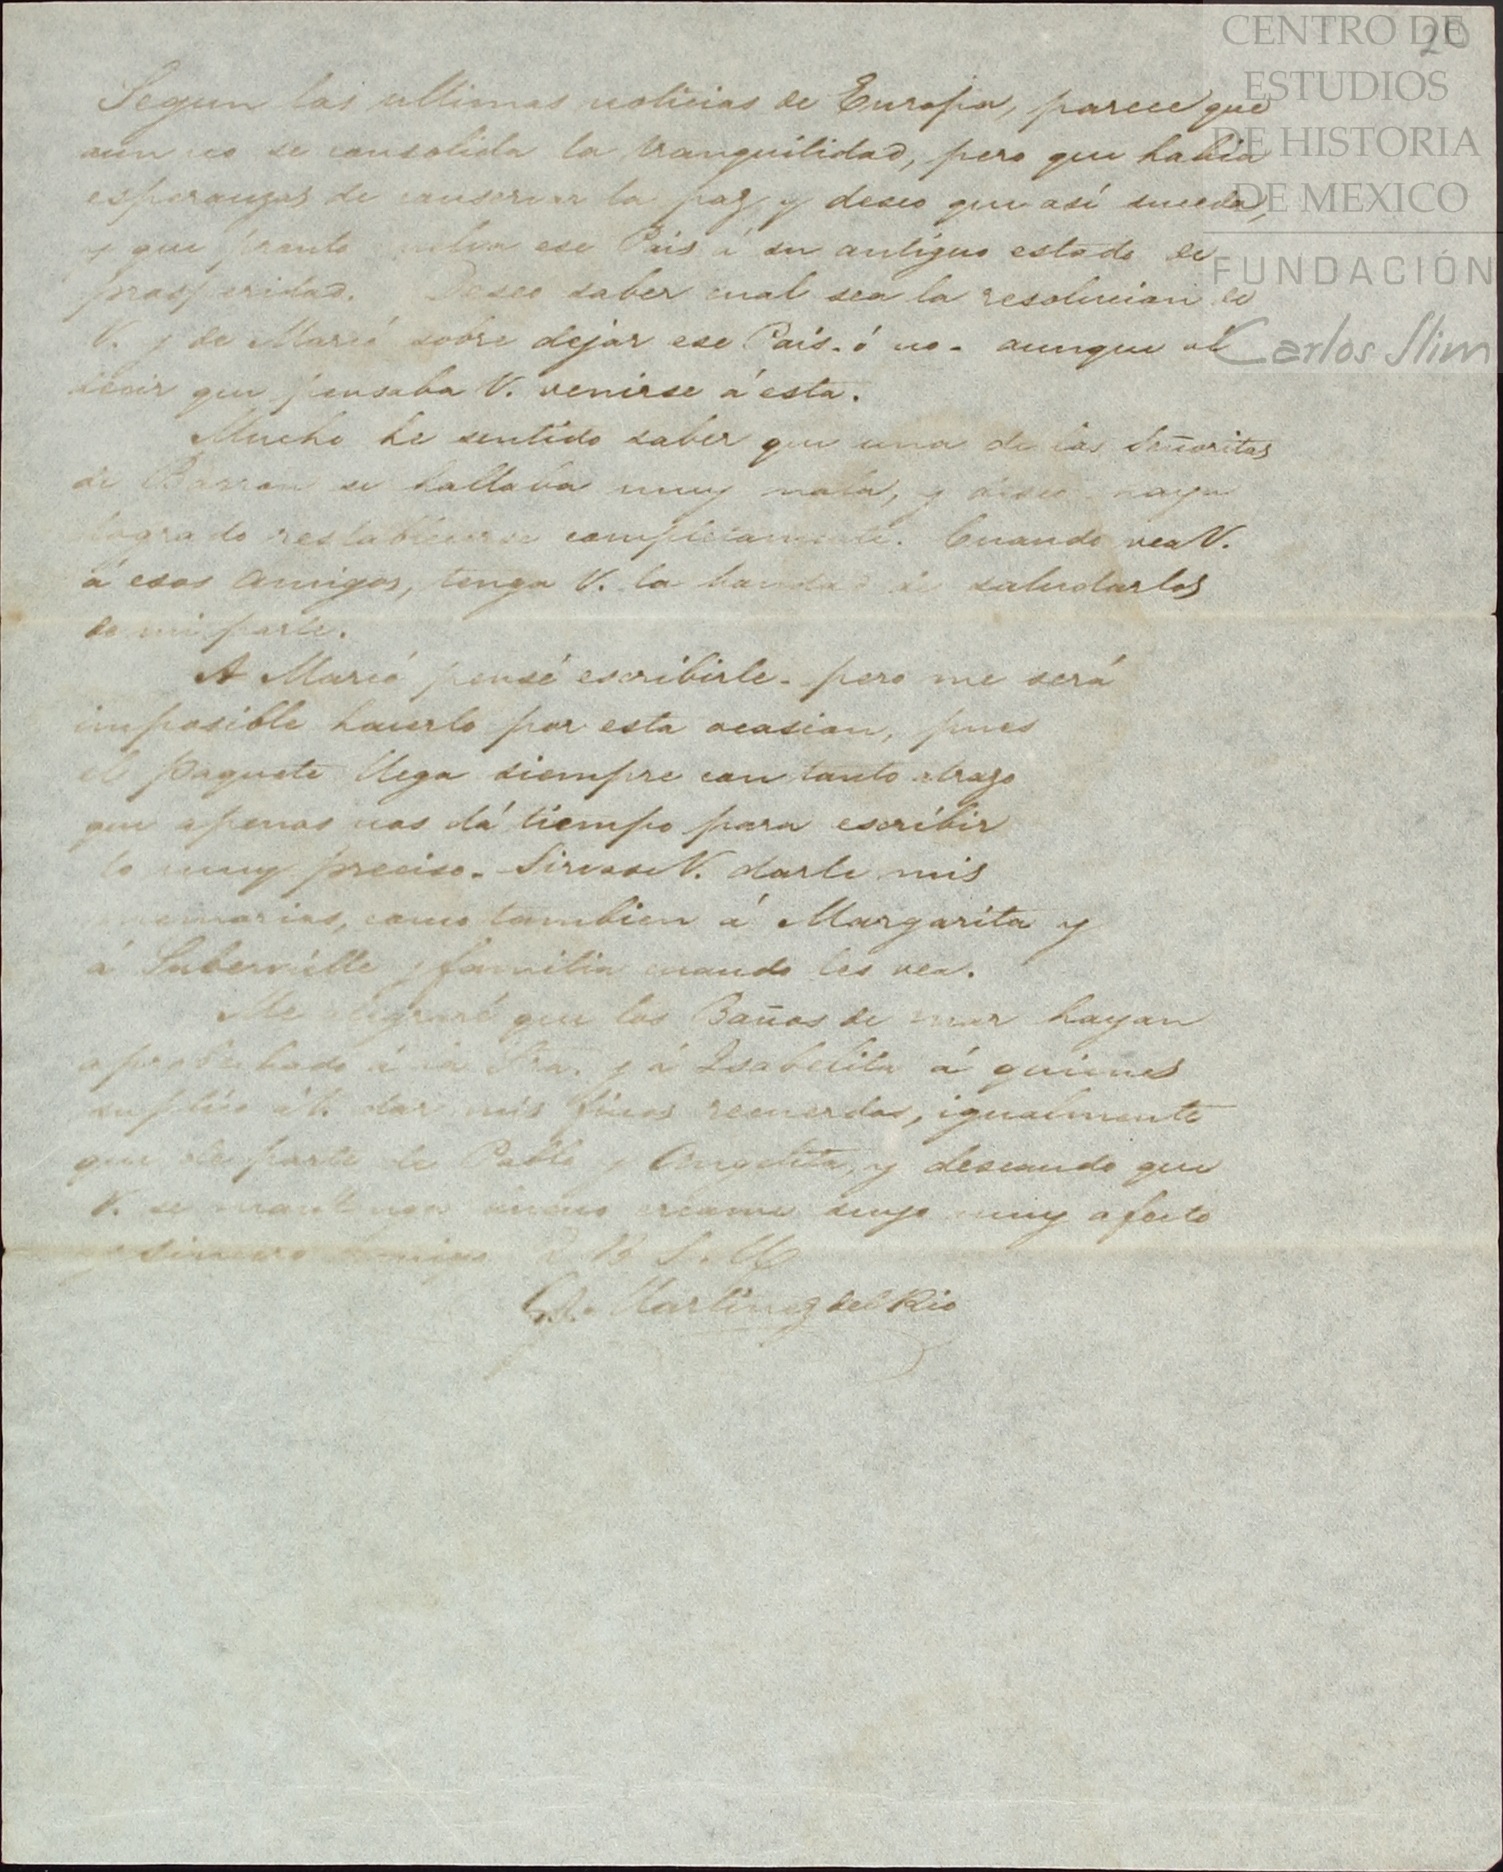 CENTRO DE
ESTUDIOS
DE HISTORIA
DE MEXICO
FUNDACIÓN
Carlos Slim
20
Segun las ultimas noticias de Europa, parece que
aun no se consolida la tranquilidad, pero que habia
esperanzas de conservar la paz, y deseo que así suceda,
y que pronto vuelva ese Pais á su antiguo estado de
prosperidad. Deseo saber cual sea la resolucion de
V. y de Marcó sobre dejar ese País - ó no - aunque oí
decir que pensaba V. venirse á esta.
Mucho he sentido saber que una de las Señoritas
de Barron se hallaba muy mala, y deseo haya
logrado restablecerse completamente. Cuando vea V.
á esos amigos, tenga V. la bondad de saludarlos
de mi parte.
A Marcó pensé escribirle - pero me será
imposible hacerlo por esta ocasion, pues
el paquete llega siempre con tanto atrazo
que apenas nos dá tiempo para escribir
lo muy preciso - Sirvase V. darle mis
memorias, como tambien á Margarita y
á Subervielle y familia cuando les vea.
Me alegraré que los Baños de mar hayan
aprobechado á la Sra. y á Isabelita á quienes
suplico á V. dar mis finos recuerdos, igualmente
que de parte de Pablo y Angelita, y deseando que
V. se mantenga bueno creame suyo muy afecto
y sincero amigo Q B S. M
Martinez del Rio